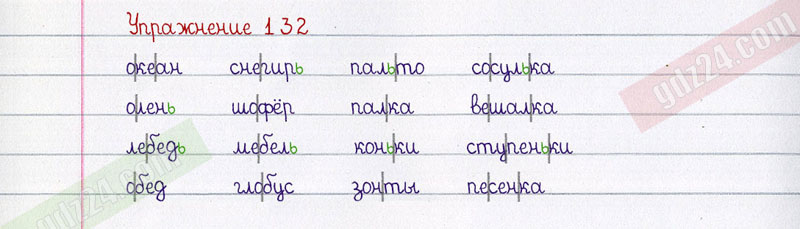 Упражнение 132
о|ке|ан сне|гирь паль|то со|суль|ка
о|лень шо|фёр пал|ка ве|шал|ка
ле|бедь ме|бельконь|ки сту|пень|ки
о|бед гло|бус зон|ты пе|сен|ка
gdz24.com
gdz24.com